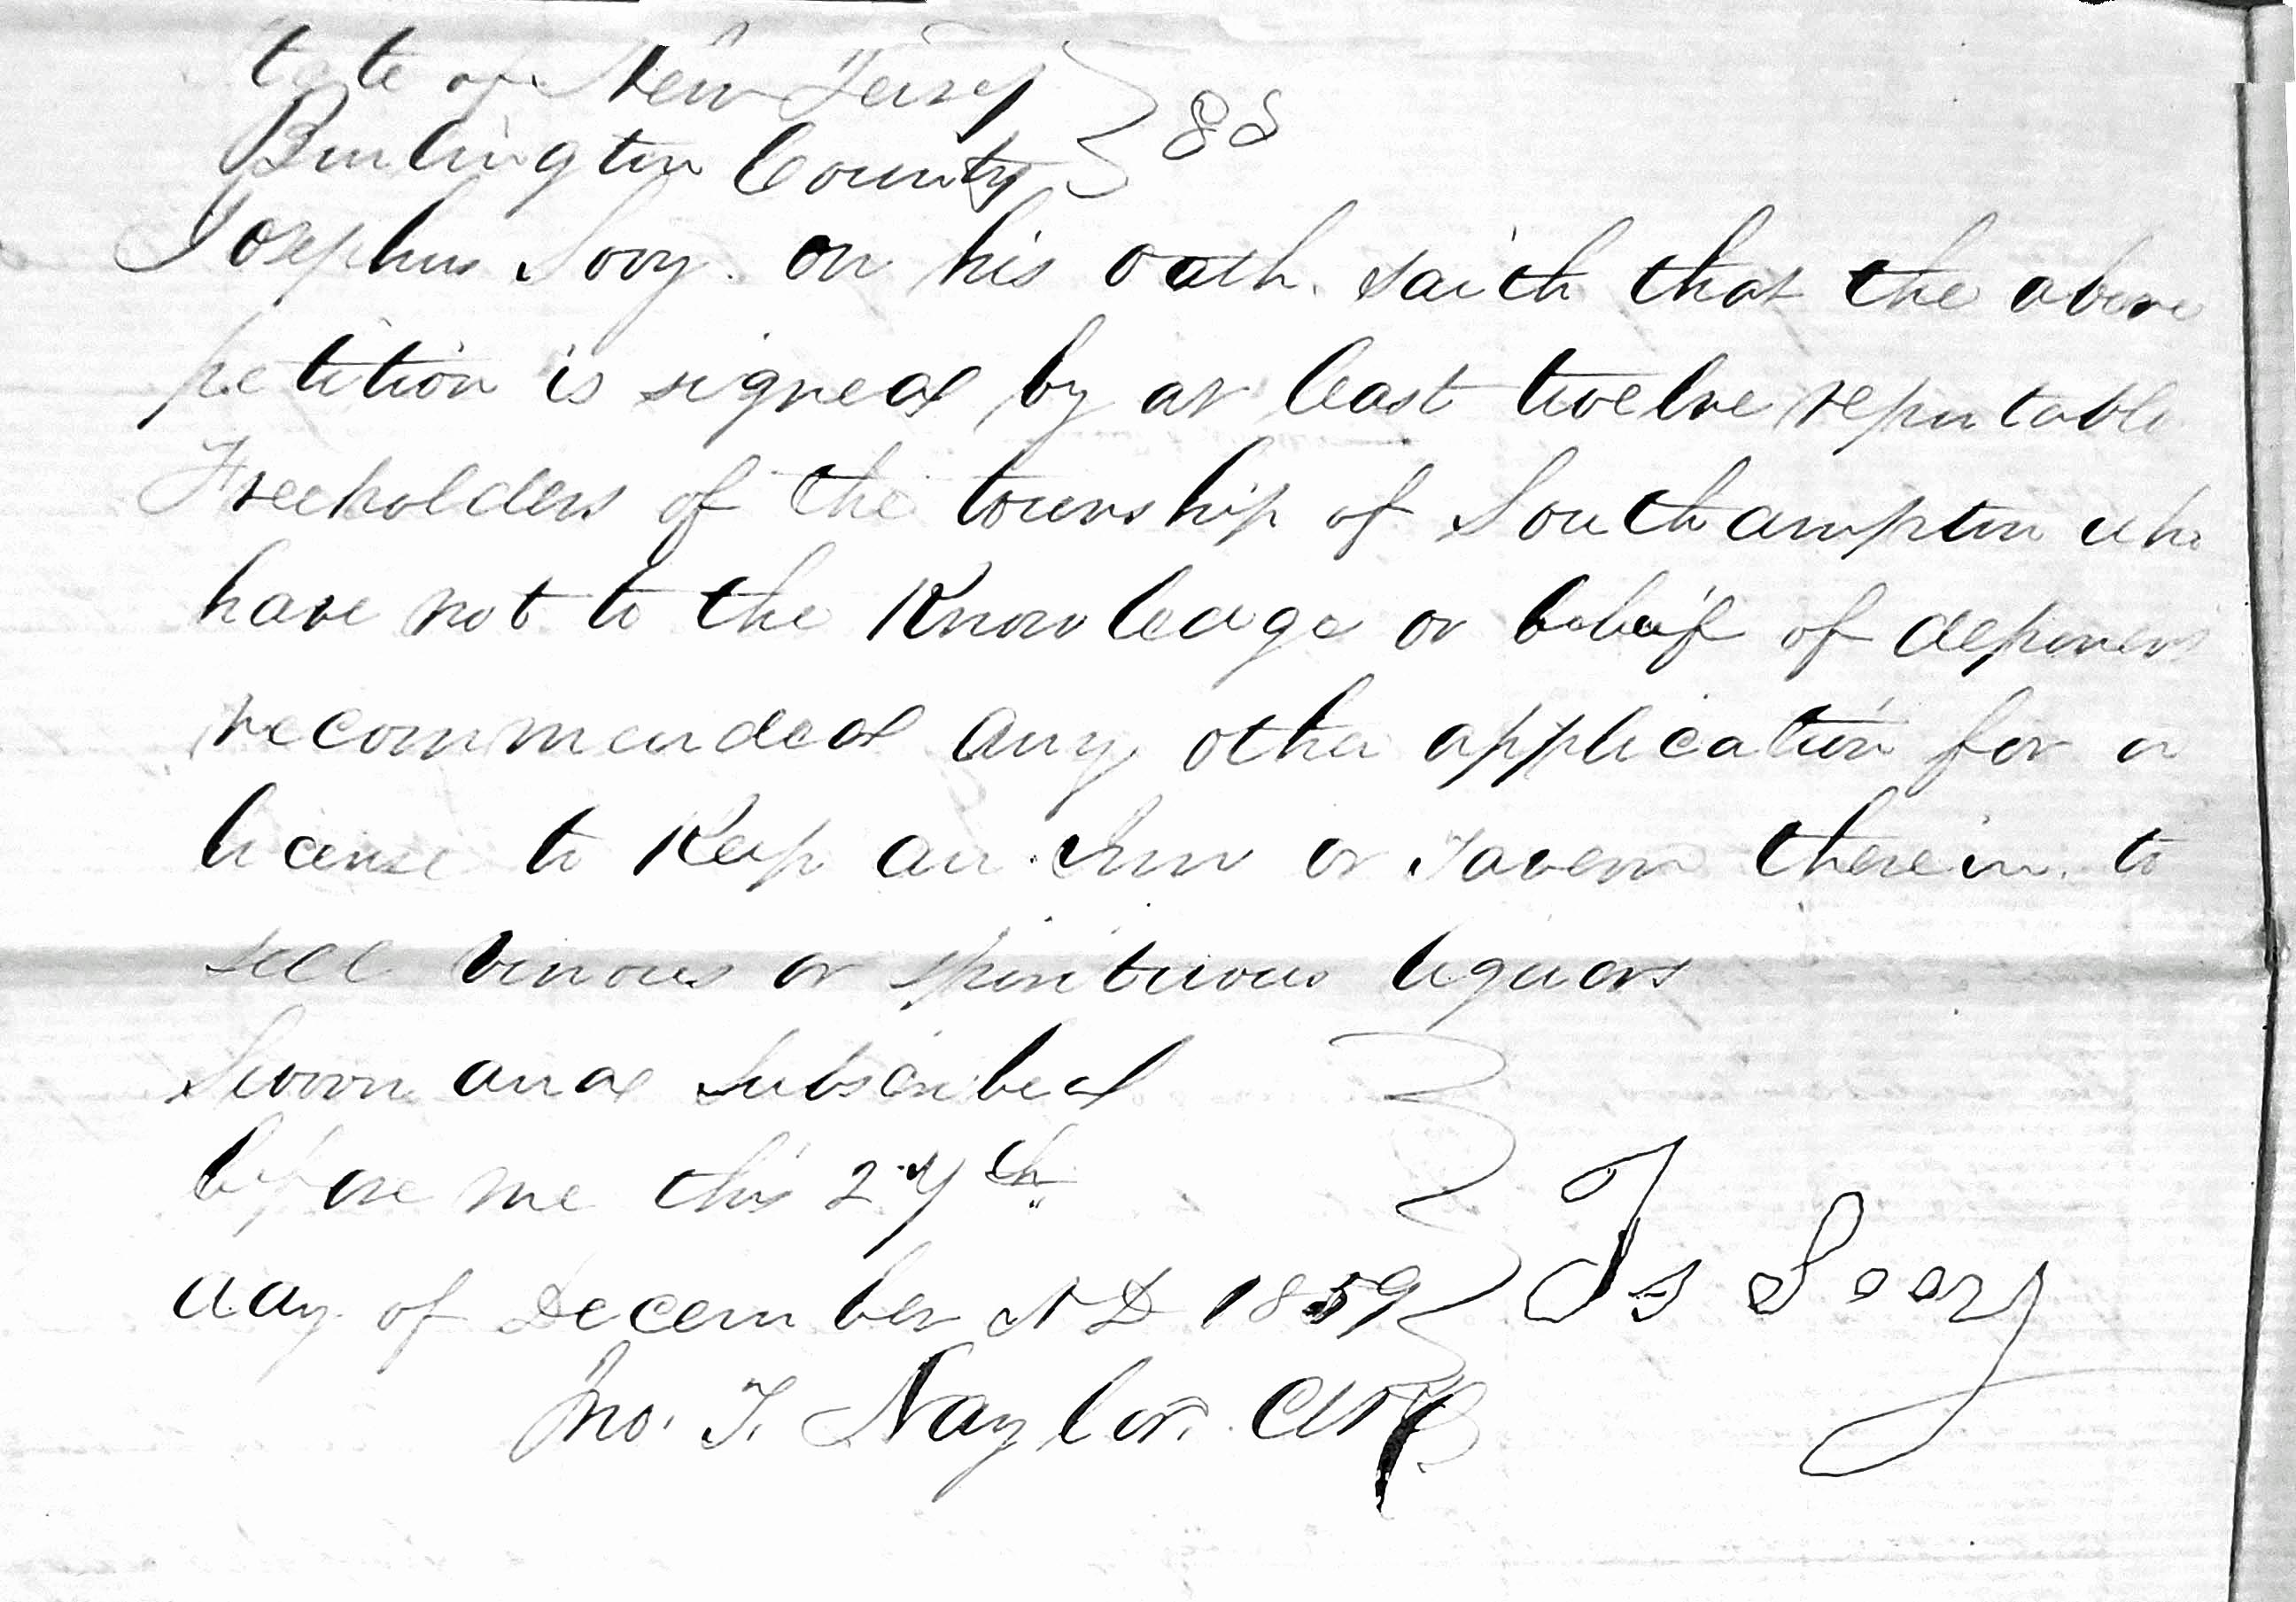 State of New Jersey } SS
Burlington County
Josephus Sooy on his oath saith that the above
petition is signed by at least twelve reputable
Freeholders of the township of Southampton who
have not to the Knowledge or beleif of deponent
recommended any other application for a
license to Keep an Inn or Tavern therein to
sell vinous or spirituous liquors
Sworn and Subscribed
before me this 27th
day of December A D 1859 } Js Sooy
Jno. T. Naylor.